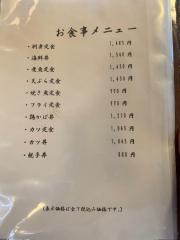 お食事メニュー
・刺身定食 1,485円
・海鮮丼 1,430円
・煮魚定食 1,430円
・天ぷら定食 1,430円
・焼き魚定食 990円
・フライ定食 990円
・鶏かば丼 1,210円
・カツ定食 1,045円
・カツ丼 1,045円
・親子丼 880円
(表示価格は全て税込み価格です。)